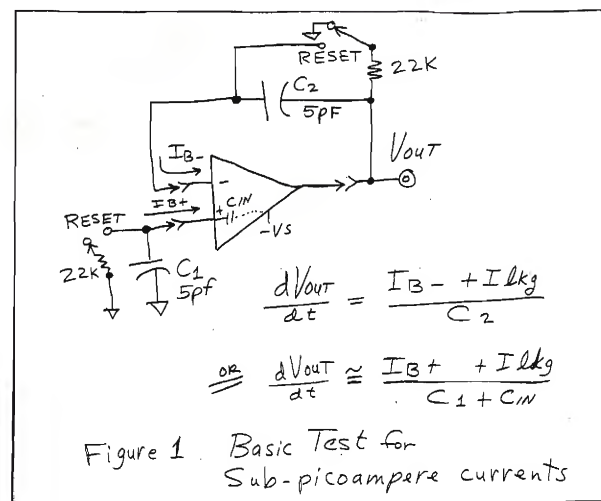 RESET
22K
C2
5PF
VOUT
IB-
-
IB+
+ CIN
-VS
RESET
22K
C1
5pf
dVOUT/dt = IB- + Ilkg / C2
OR dVOUT/dt ≅ IB+ + Ilkg / C1 + CIN
Figure 1 Basic Test for
Sub-picoampere currents